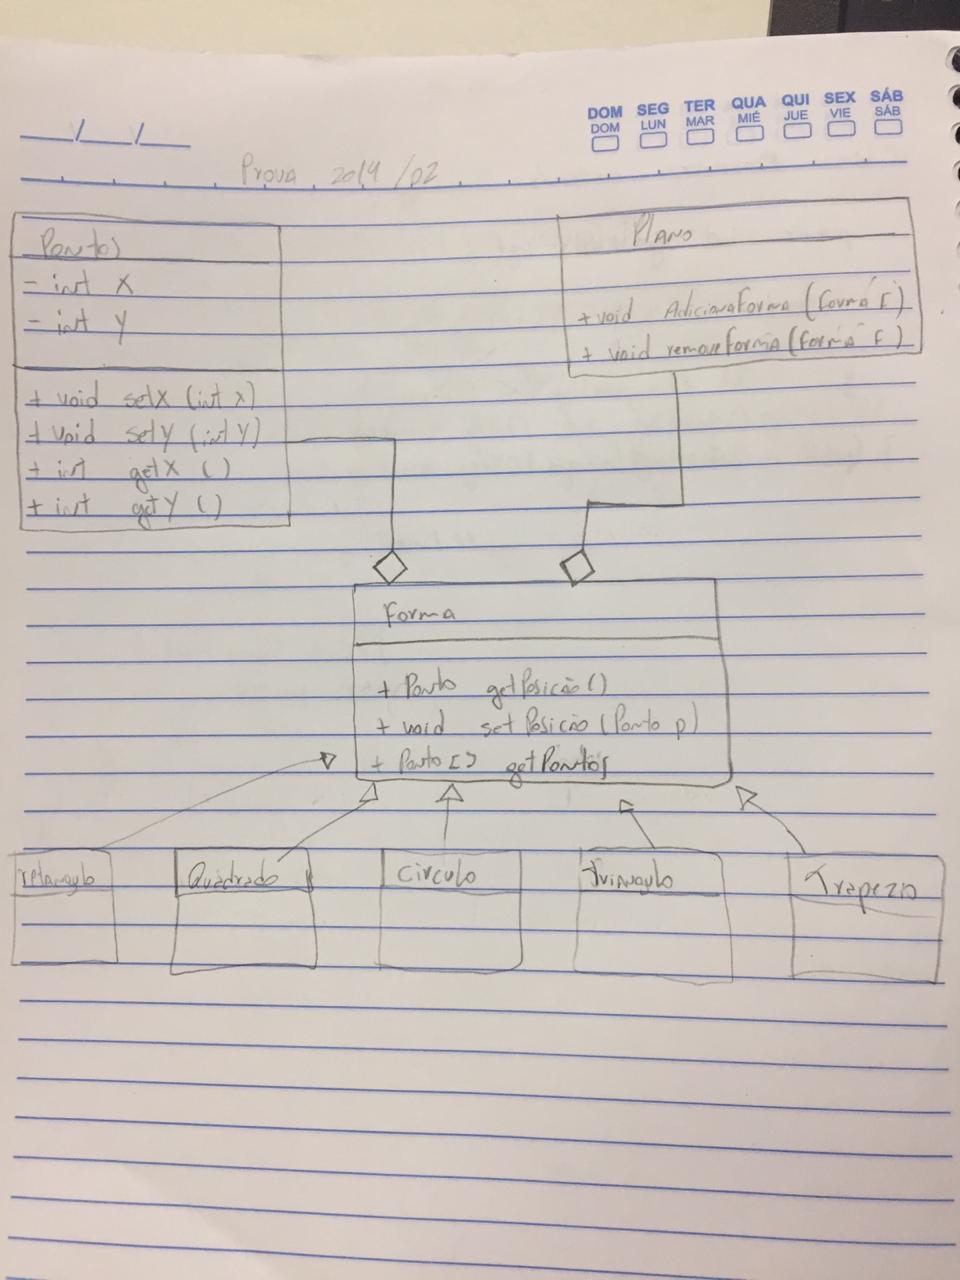 DOM SEG TER QUA QUI SEX SÁB
DOM LUN MAR MIÉ JUE VIE SÁB
Prova 2014/02
Pontos
- int X
- int Y
+ void setX (int x)
+ void setY (int Y)
+ int getX ()
+ int getY ()
Plano
+ void AdicionaForma (Forma F)
+ void removeForma (Forma F)
Forma
+ Ponto getPosição()
+ void setPosição (Ponto p)
+ Ponto [] getPontos
Quadrado
Circulo
Triangulo
Trapezio